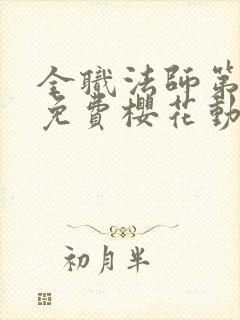 全職法師第
免費櫻花動
初月半